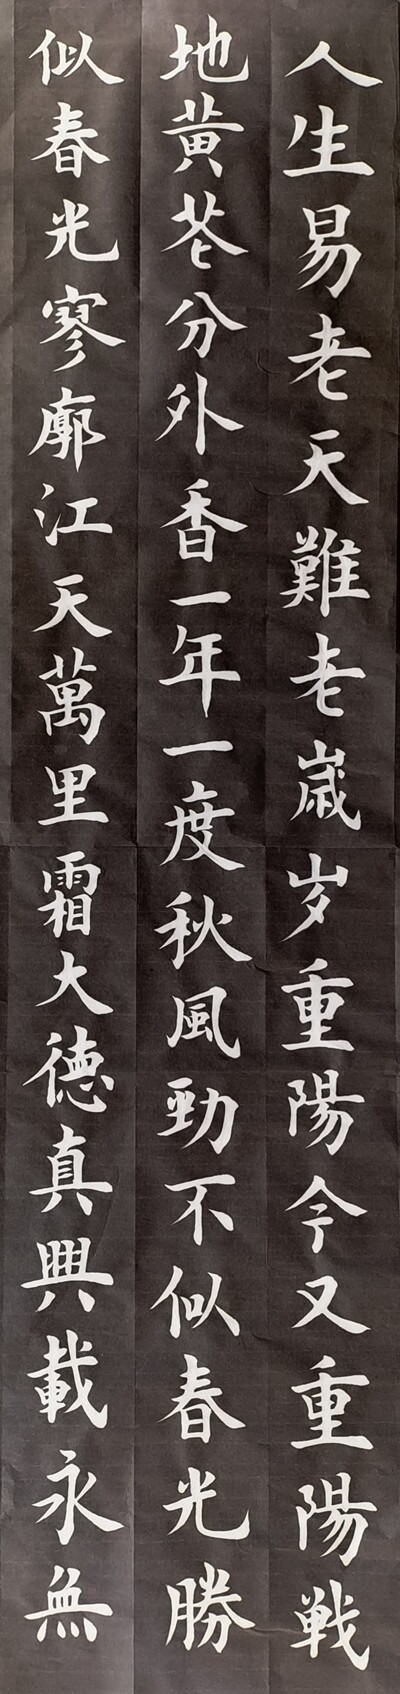 人生易老天難老歳岁重陽今又重陽戦
地黄花分外香一年一度秋風勁不似春光勝
似春光寥廓江天萬里霜大徳真興載永無